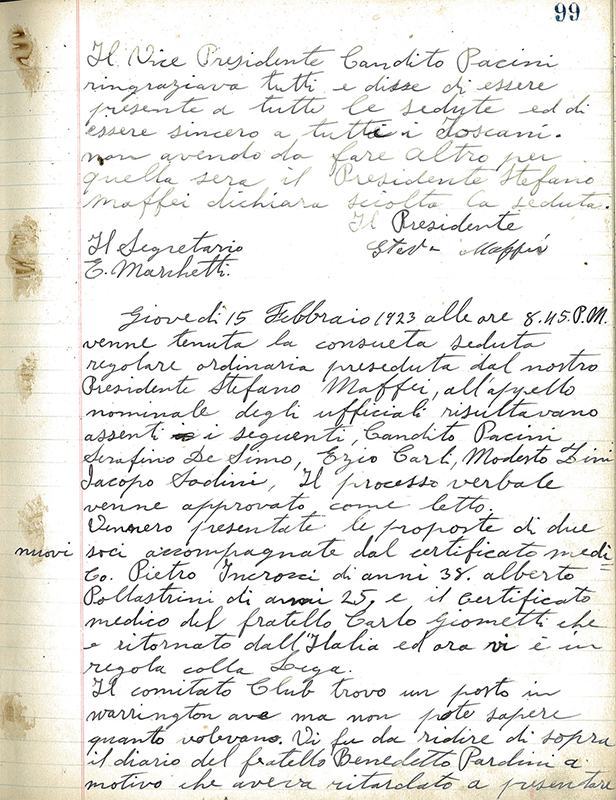 99
Il Vice Presidente Candito Pacini
ringraziava tutti e disse di essere
presente a tutte le sedute ed di
essere sincero a tutti i Toscani.
non avendo da fare altro per
quella sera il Presidente Stefano
Maffei dichiara sciolta la seduta.
Il Presidente
Il Segretario
Stef. Maffei
E. Marchetti.
Giovedi 15 Febbraio 1923 alle ore 8.45 P.M.
venne tenuta la consueta seduta
regolare ordinaria preseduta dal nostro
Presidente Stefano Maffei, all'appello
nominale degli ufficiali risultavano
assenti i seguenti, Candito Pacini
Serafino De Simo, Ezio Carli, Modesto Dini
Iacopo Sodini, Il processo verbale
venne approvato come letto.
Vennero presentate le proposte di due
nuovi soci accompagnate dal certificato medi=
co. Pietro Incrocci di anni 38. alberto
Pollastrini di anni 25, e il certificato
medico del fratello Carlo Giometti che
e ritornato dall'Italia ed ora vi è in
regola colla Lega.
Il comitato Club trovo un posto in
warrington ave ma non pote sapere
quanto volevano. Vi fu da ridire di sopra
il diario del fratello Benedetto Pardini a
motivo che aveva ritardato a presentare